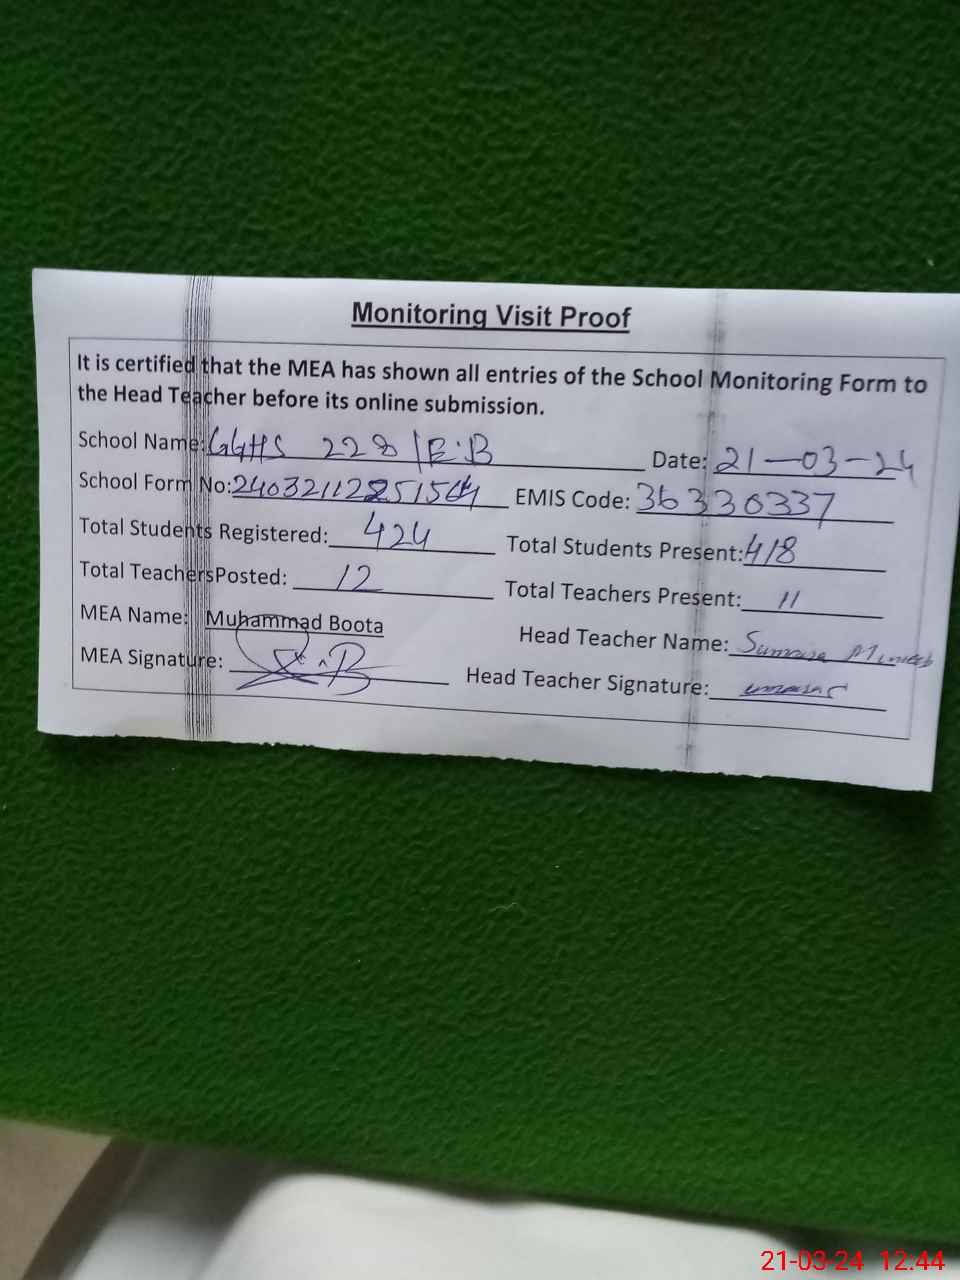 Monitoring Visit Proof
It is certified that the MEA has shown all entries of the School Monitoring Form to
the Head Teacher before its online submission.
School Name: GGHS 228/E.B Date: 21-03-24
School Form No: EMIS Code: 36330337
Total Students Registered: 424 Total Students Present: 418
Total TeachersPosted: 12 Total Teachers Present: 11
MEA Name: Muhammad Boota Head Teacher Name:
MEA Signature: Head Teacher Signature:
21-03-24 12:44